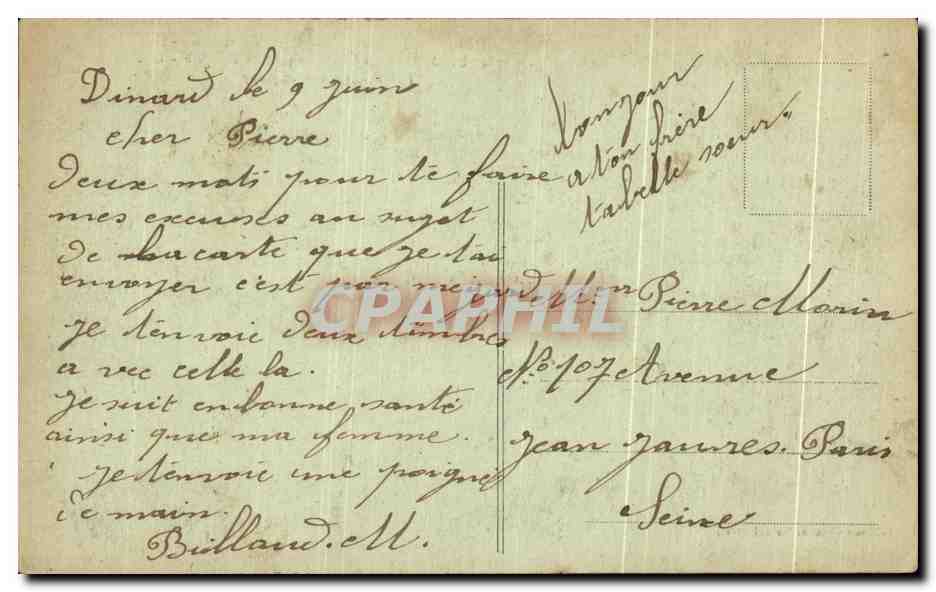 Dinard le 9 juin
cher Pierre
deux mots pour te faire
mes excuses au sujet
de la carte que je tai
envoyer c'est par mégarde
je tenvoie deux timbres
avec celle la.
Je suit en bonne santé
ainsi que ma femme.
Je tenvoie une poignée
de main.
Billaud. M.
bonjour
a ton frère
ta belle soeur.
Mr Pierre Morin
No 107 Avenue
Jean Jaures. Paris
Seine
CPAPHIL